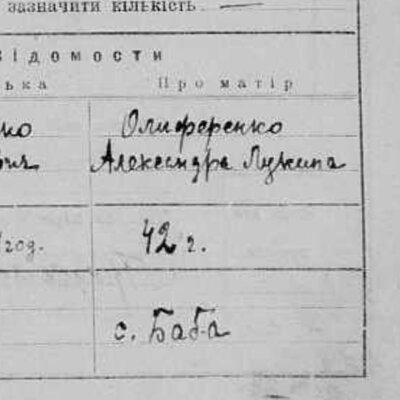 зазначити кількість
відомости
ька Про матір
ко Олиференко
вич Александра Лукина
год. 42 г.
с. Баба